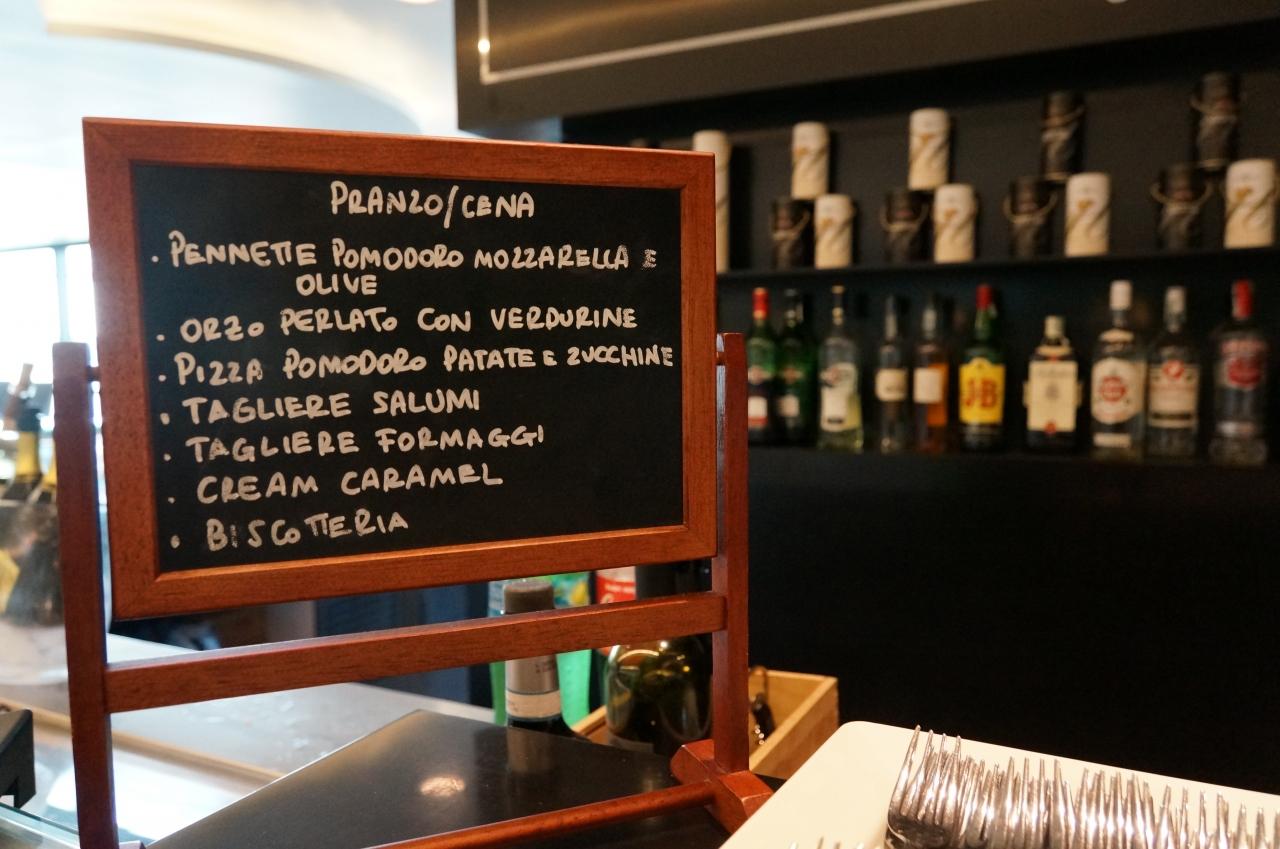 PRANZO/CENA
· PENNETTE POMODORO MOZZARELLA E
OLIVE
· ORZO PERLATO CON VERDURINE
· PIZZA POMODORO PATATE E ZUCCHINE
· TAGLIERE SALUMI
· TAGLIERE FORMAGGI
· CREAM CARAMEL
· BISCOTTERIA
J&B